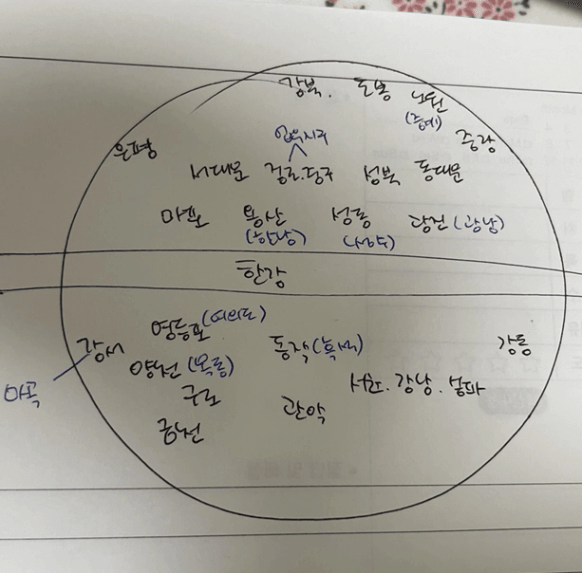 강북. 도봉 노원
(중계)
은평 중랑
서대문 종로.중구 성북 동대문
마포 용산 성동 광진 (광남)
(한남) (성수)
한강
영등포 (여의도)
강서 동작 (흑석) 강동
양천 (목동)
마곡 구로 관악 서초. 강남. 송파
금천